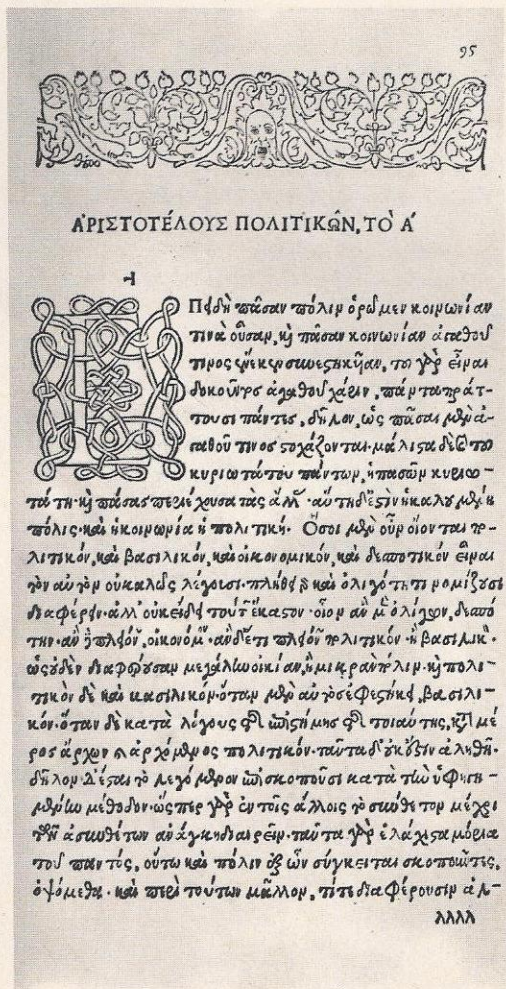 95
ἈΡΙΣΤΟΤΈΛΟΥΣ ΠΟΛΙΤΙΚΩ͂Ν, ΤῸ Α΄
Ἐπειδὴ πᾶσαν πόλιν ὁρῶμεν κοινωνίαν
τινὰ οὖσαν, καὶ πᾶσαν κοινωνίαν ἀγαθοῦ
τινος ἕνεκεν συνεστηκῆαν, τοῦ γὰρ εἶναι
δοκοῦντος ἀγαθοῦ χάριν, πάντα πράτ-
τουσι πάντες, δῆλον, ὡς πᾶσαι μὲν ἀ-
γαθοῦ τινος στοχάζονται· μάλιστα δὲ καὶ τοῦ
κυριωτάτου πάντων, ἡ πασῶν κυριω-
τάτη· καὶ πάσας περιέχουσα τὰς ἄλλας· αὕτη δ' ἐστὶν ἡ καλουμένη
πόλις· καὶ ἡ κοινωνία ἡ πολιτική· Ὅσοι μὲν οὖν οἴονται πο-
λιτικόν, καὶ βασιλικόν, καὶ οἰκονομικόν, καὶ δεσποτικόν εἶναι
τὸν αὐτὸν οὐ καλῶς λέγουσι· πλήθει γὰρ καὶ ὀλιγότητι νομίζουσι
διαφέρειν· ἀλλ' οὐκ εἴδει τούτων ἕκαστον· οἷον ἂν μὲν ὀλίγων, δεσπό
την· ἂν δὲ πλειόνων, οἰκονόμον· ἂν δ' ἔτι πλειόνων πολιτικόν· ἢ βασιλικόν·
ὡς οὐδὲν διαφέρουσαν μεγάλην οἰκίαν, ἢ μικρὰν πόλιν· καὶ πολι-
τικὸν δὲ καὶ κασιλικόν· ὅταν μὲν αὐτὸς ἐφεστήκῃ, βασιλι-
κόν· ὅταν δὲ κατὰ λόγους τῆς ἐπιστήμης τῆς τοιαύτης, κατὰ μέ
ρος ἄρχων καὶ ἀρχόμενος πολιτικόν· ταῦτα δ' οὐκ ἔστιν ἀληθῆ·
δῆλον δ' ἔσται τὸ λεγόμενον ἐπισκοποῦσι κατὰ τὴν ὑφηγη-
μένην μέθοδον· ὥσπερ γὰρ ἐν τοῖς ἄλλοις τὸ σύνθετον μέχρι
τῶν ἀσυνθέτων ἀνάγκη διαιρεῖν· ταῦτα γὰρ ἐλάχιστα μόρια
τοῦ παντός, οὕτω καὶ πόλιν ἐξ ὧν σύγκειται σκοποῦντες,
ὀψόμεθα· καὶ περὶ τούτων μᾶλλον, τί τε διαφέρουσιν ἀλ-
λλλλ